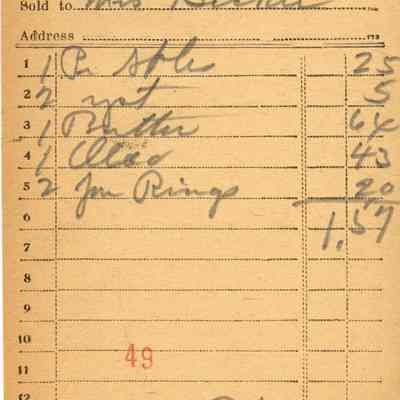 Sold to Mrs
Address
1 1 Pr 25
2 2 yst 5
3 1 Butter 64
4 1 Oleo 43
5 2 Jar Rings 20
6 1.57
7
8
9
10
49
11
12